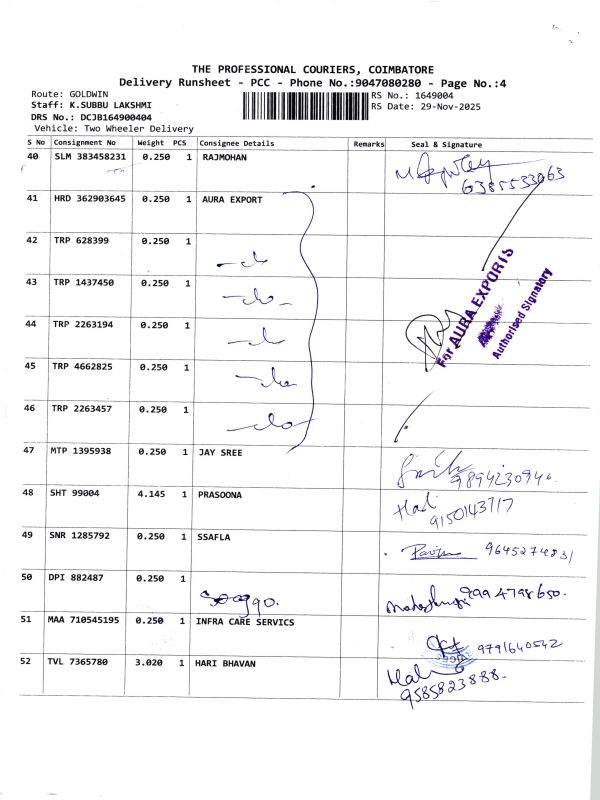 THE PROFESSIONAL COURIERS, COIMBATORE
Delivery Runsheet - PCC - Phone No.:9047080280 - Page No.:4
Route: GOLDWIN
RS No.: 1649004
Staff: K.SUBBU LAKSHMI
RS Date: 29-Nov-2025
DRS No.: DCJB164900404
Vehicle: Two Wheeler Delivery
S No Consignment No Weight PCS Consignee Details Remarks Seal & Signature
40 SLM 383458231 0.250 1 RAJMOHAN
6385533063
41 HRD 362903645 0.250 1 AURA EXPORT
42 TRP 628399 0.250 1
-do-
43 TRP 1437450 0.250 1
-do-
44 TRP 2263194 0.250 1
-do-
For AURA EXPORTS
Authorised Signatory
45 TRP 4662825 0.250 1
-do-
46 TRP 2263457 0.250 1
-do-
47 MTP 1395938 0.250 1 JAY SREE
9894230940.
48 SHT 99004 4.145 1 PRASOONA
Hari
9150143717
49 SNR 1285792 0.250 1 SSAFLA
9645274831
50 DPI 882487 0.250 1
9994798650.
51 MAA 710545195 0.250 1 INFRA CARE SERVICS
9791640542
52 TVL 7365780 3.020 1 HARI BHAVAN
9585823888.